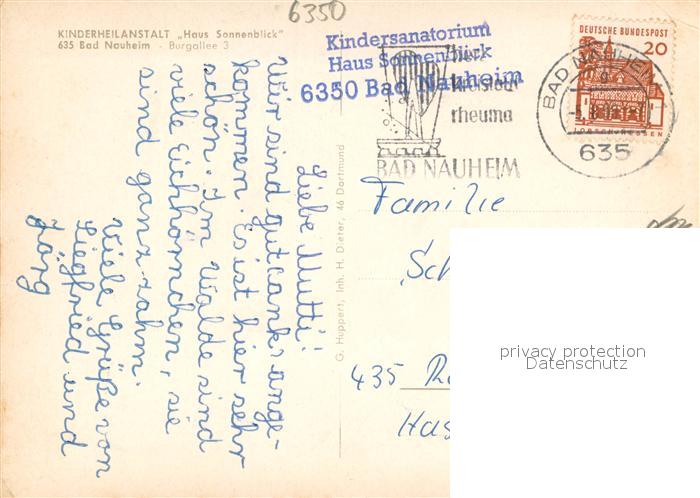 6350
KINDERHEILANSTALT „Haus Sonnenblick"
635 Bad Nauheim - Burgallee 3
Kindersanatorium
Haus Sonnenblick
6350 Bad Nauheim
herz
kreislauf
rheuma
BAD NAUHEIM
DEUTSCHE BUNDESPOST
20
LORSCH/HESSEN
BAD NAUHEIM
635
Liebe Mutti!
Wir sind gut ange-
kommen. Es ist hier sehr
schön. Im Walde sind
viele Eichhörnchen, sie
sind ganz zahm.
Viele Grüße von
Siegfried und
Jörg
G. Huppert, Inh. H. Dieter, 46 Dortmund
Familie
Sch
435
Has
privacy protection
Datenschutz